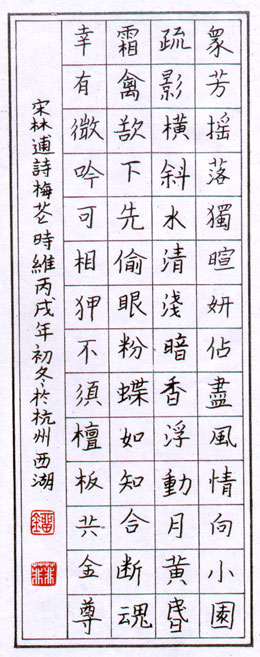 衆芳摇落獨暄妍佔盡風情向小園
疏影橫斜水清淺暗香浮動月黃昏
霜禽欲下先偷眼粉蝶如知合断魂
幸有微吟可相狎不須檀板共金尊
宋林逋詩梅花時維丙戌年初冬於杭州西湖